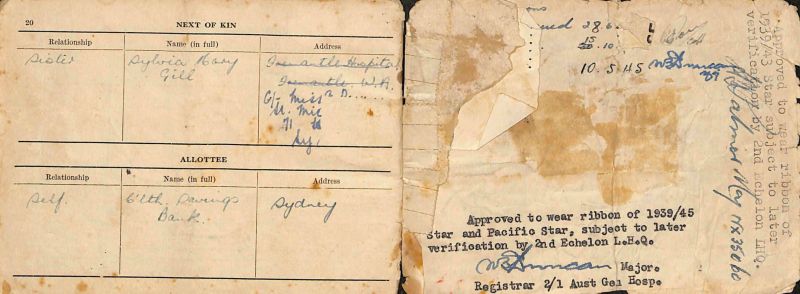 20
NEXT OF KIN
Relationship Name (in full) Address
Sister Sylvia Mary Fremantle Hospital
Gill Fremantle, W.A.
C/- Miss
St.
Sy.
ALLOTTEE
Relationship Name (in full) Address
Self. C'lth. Savings Sydney
Bank.
28.6.
15
10.
10.5.45 WB Duncan
Approved to wear ribbon of
1939/43 Star subject to later
verification by 2nd Echelon LHQ.
Maj NX35060
Approved to wear ribbon of 1939/45
Star and Pacific Star, subject to later
verification by 2nd Echelon L.H.Q.
WB Duncan Major.
Registrar 2/1 Aust Gen Hosp.